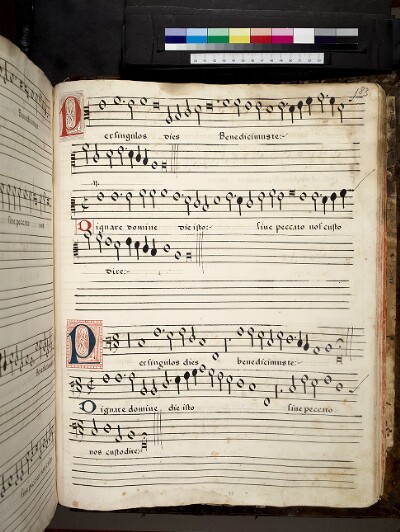 183
Per singulos dies Benedicimus te:~
Dignare domine die isto: sine peccato nos custo
dire:~
Per singulos dies benedicimus te:~
Dignare domine die isto sine peccato
nos custodire:~